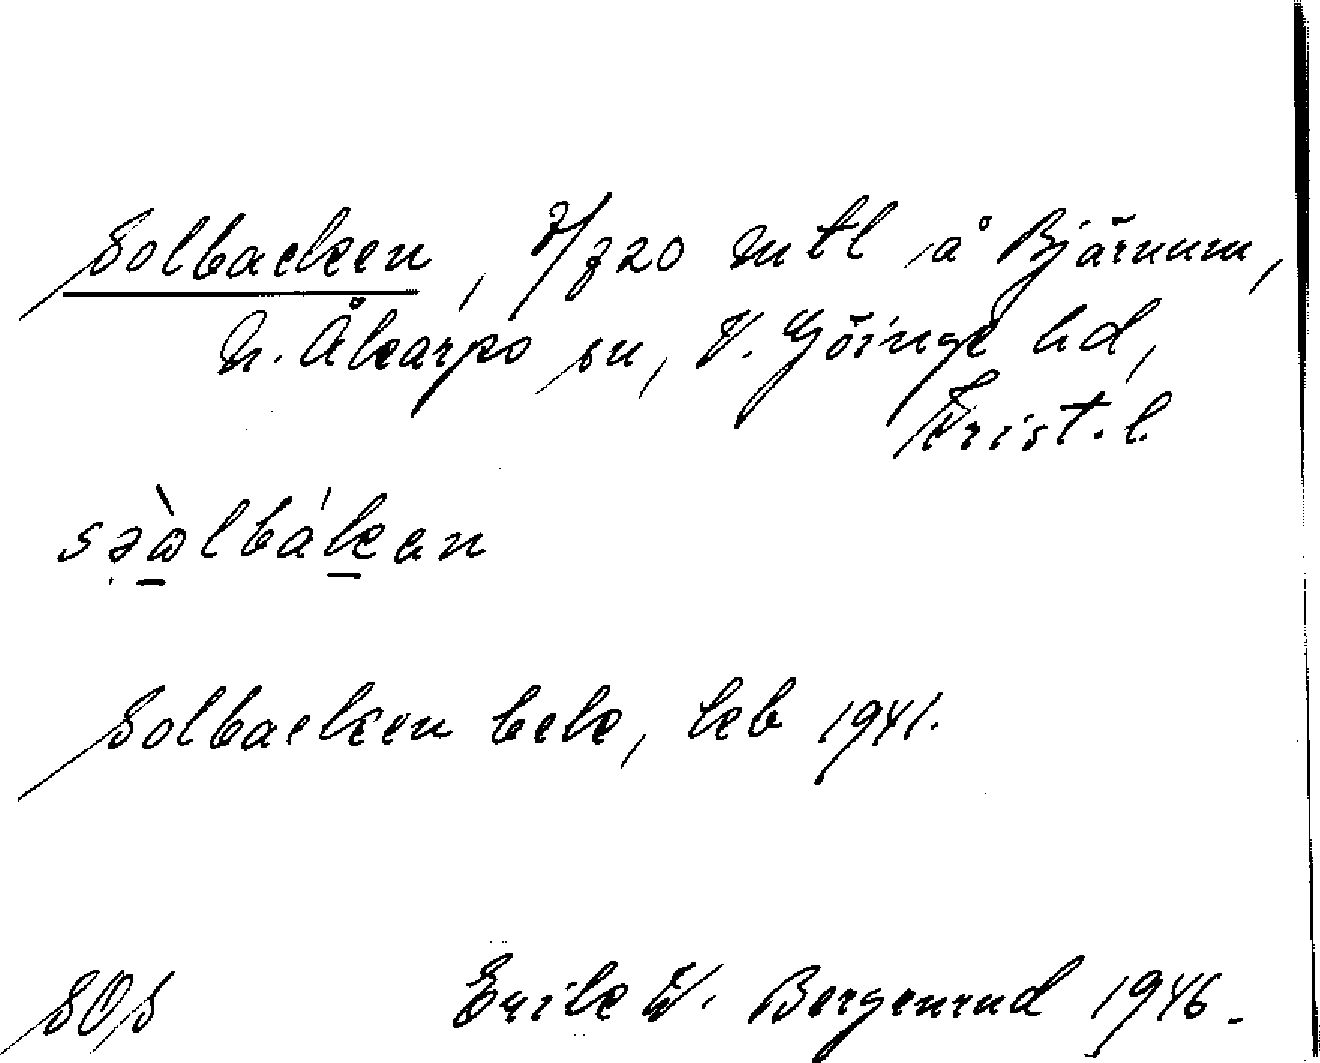 Solbacken, 7/720 mtl å Bjärnum,
N. Åkarps sn, V. Göinge hd,
Krist. l.
səὼlbákan
Solbacken bek, kb 1941.
SOS Erik W. Bergenrud 1946.